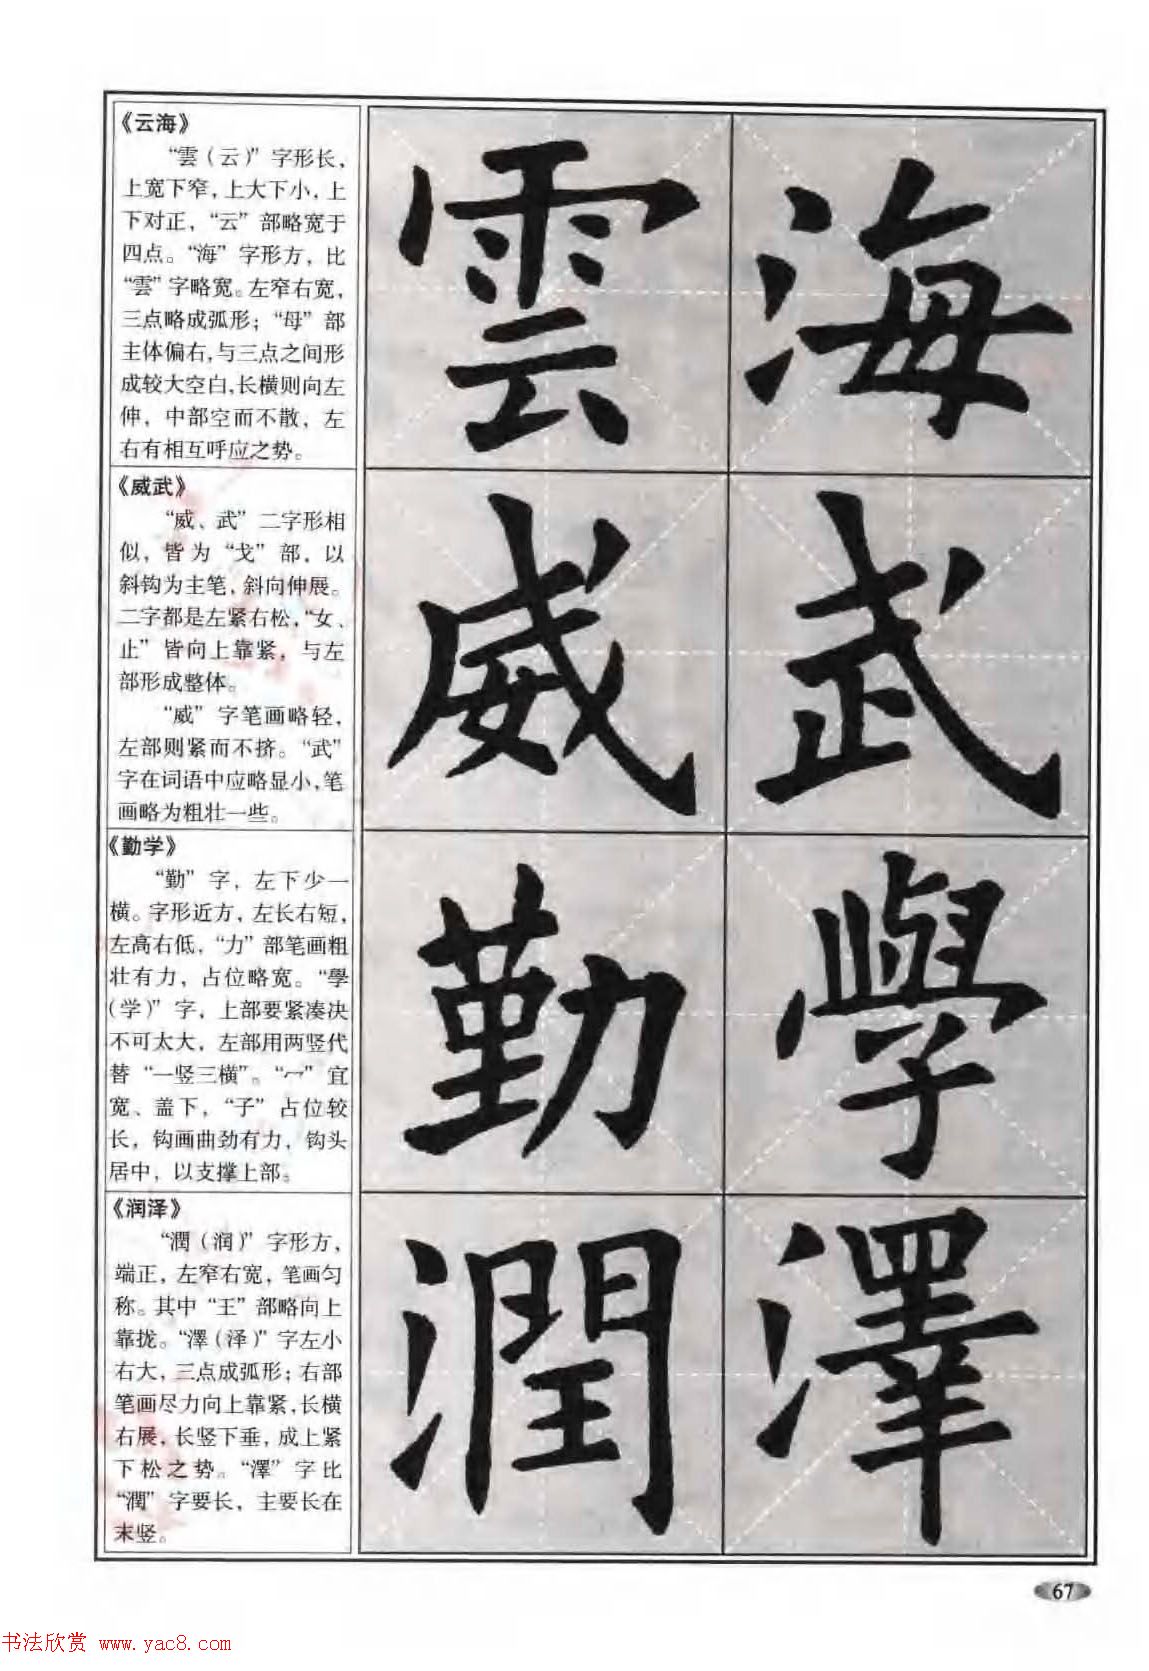 《云海》
“雲（云）”字形长，
上宽下窄，上大下小，上
下对正，“云”部略宽于
四点。“海”字形方，比
“雲”字略宽。左窄右宽，
三点略成弧形；“母”部
主体偏右，与三点之间形
成较大空白，长横则向左
伸，中部空而不散，左
右有相互呼应之势。
雲海
《威武》
“威、武”二字形相
似，皆为“戈”部，以
斜钩为主笔，斜向伸展。
二字都是左紧右松，“女、
止”皆向上靠紧，与左
部形成整体。
“威”字笔画略轻，
左部则紧而不挤。“武”
字在词语中应略显小，笔
画略为粗壮一些。
威武
《勤学》
“勤”字，左下少一
横。字形近方，左长右短，
左高右低，“力”部笔画粗
壮有力，占位略宽。“學
（学）”字，上部要紧凑决
不可太大，左部用两竖代
替“一竖三横”。“冖”宜
宽、盖下，“子”占位较
长，钩画曲劲有力，钩头
居中，以支撑上部。
勤學
《润泽》
“潤（润）”字形方，
端正，左窄右宽，笔画匀
称。其中“王”部略向上
靠拢。“澤（泽）”字左小
右大，三点成弧形；右部
笔画尽力向上靠紧，长横
右展，长竖下垂，成上紧
下松之势。“澤”字比
“潤”字要长，主要长在
末竖。
潤澤
67
书法欣赏 www.yac8.com